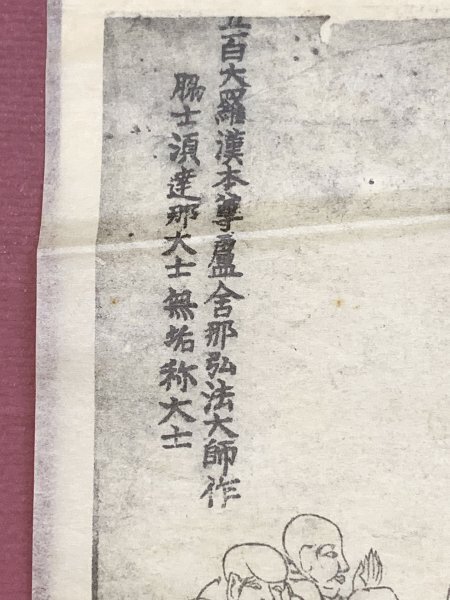 五百大羅漢本尊盧舎那弘法大師作
脇士須達那大士無垢称大士